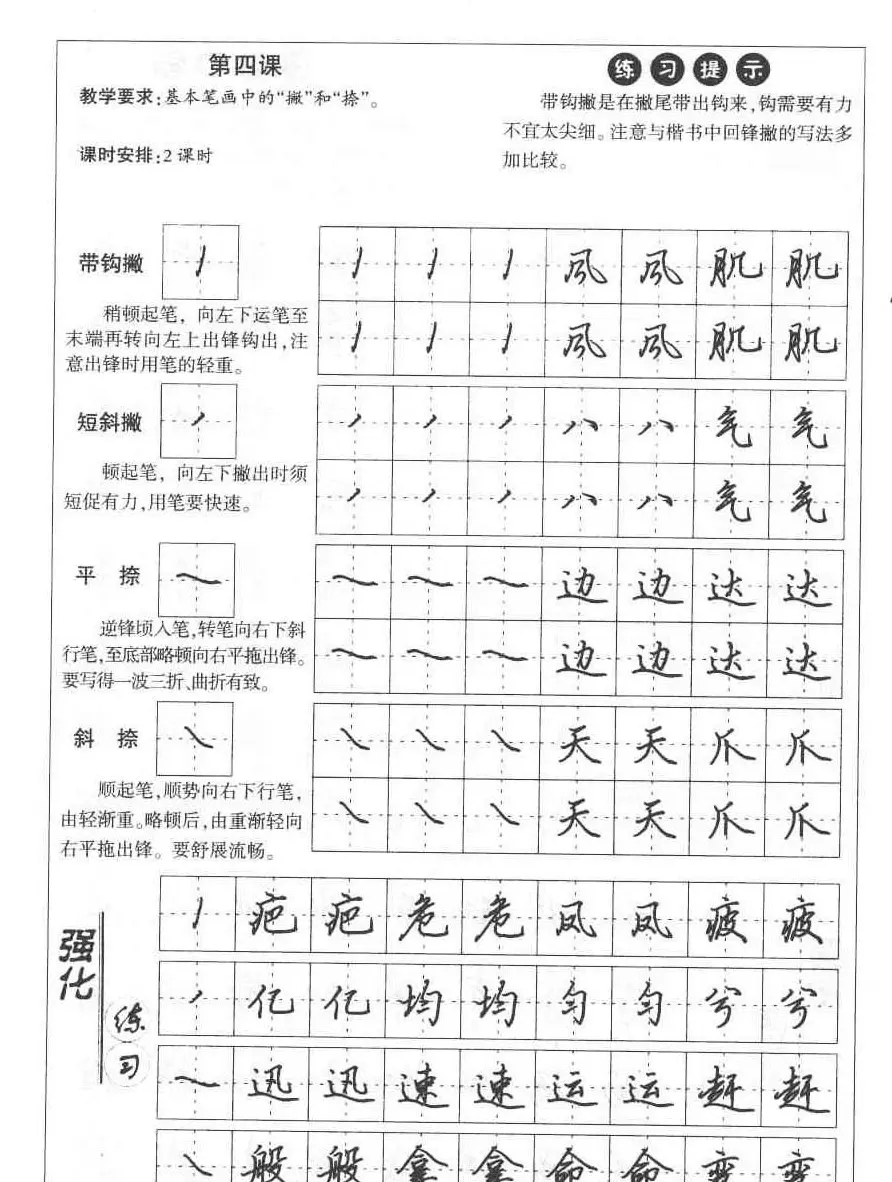 第四课
教学要求:基本笔画中的“撇”和“捺”。
课时安排:2课时
练习提示
带钩撇是在撇尾带出钩来,钩需要有力
不宜太尖细。注意与楷书中回锋撇的写法多
加比较。
带钩撇
稍顿起笔,向左下运笔至
末端再转向左上出锋钩出,注
意出锋时用笔的轻重。
丿 丿 丿 風 風 肌 肌
丿 丿 丿 風 風 肌 肌
短斜撇
顿起笔,向左下撇出时须
短促有力,用笔要快速。
丿 丿 丿 八 八 气 气
丿 丿 丿 八 八 气 气
平 捺
逆锋顷入笔,转笔向右下斜
行笔,至底部略顿向右平拖出锋。
要写得一波三折、曲折有致。
㇏ ㇏ ㇏ 边 边 达 达
㇏ ㇏ ㇏ 边 边 达 达
斜 捺
顺起笔,顺势向右下行笔,
由轻渐重。略顿后,由重渐轻向
右平拖出锋。要舒展流畅。
㇏ ㇏ ㇏ 天 天 爪 爪
㇏ ㇏ ㇏ 天 天 爪 爪
强化
练习
丿 疤 疤 危 危 凤 凤 疲 疲
丿 亿 亿 均 均 匀 匀 兮 兮
㇏ 迅 迅 速 速 运 运 赶 赶
㇏ 般 般 拿 拿 命 命 变 变